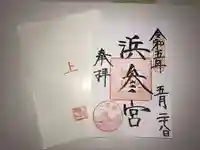 令和五年
五月二八日
浜参宮
奉拝
上